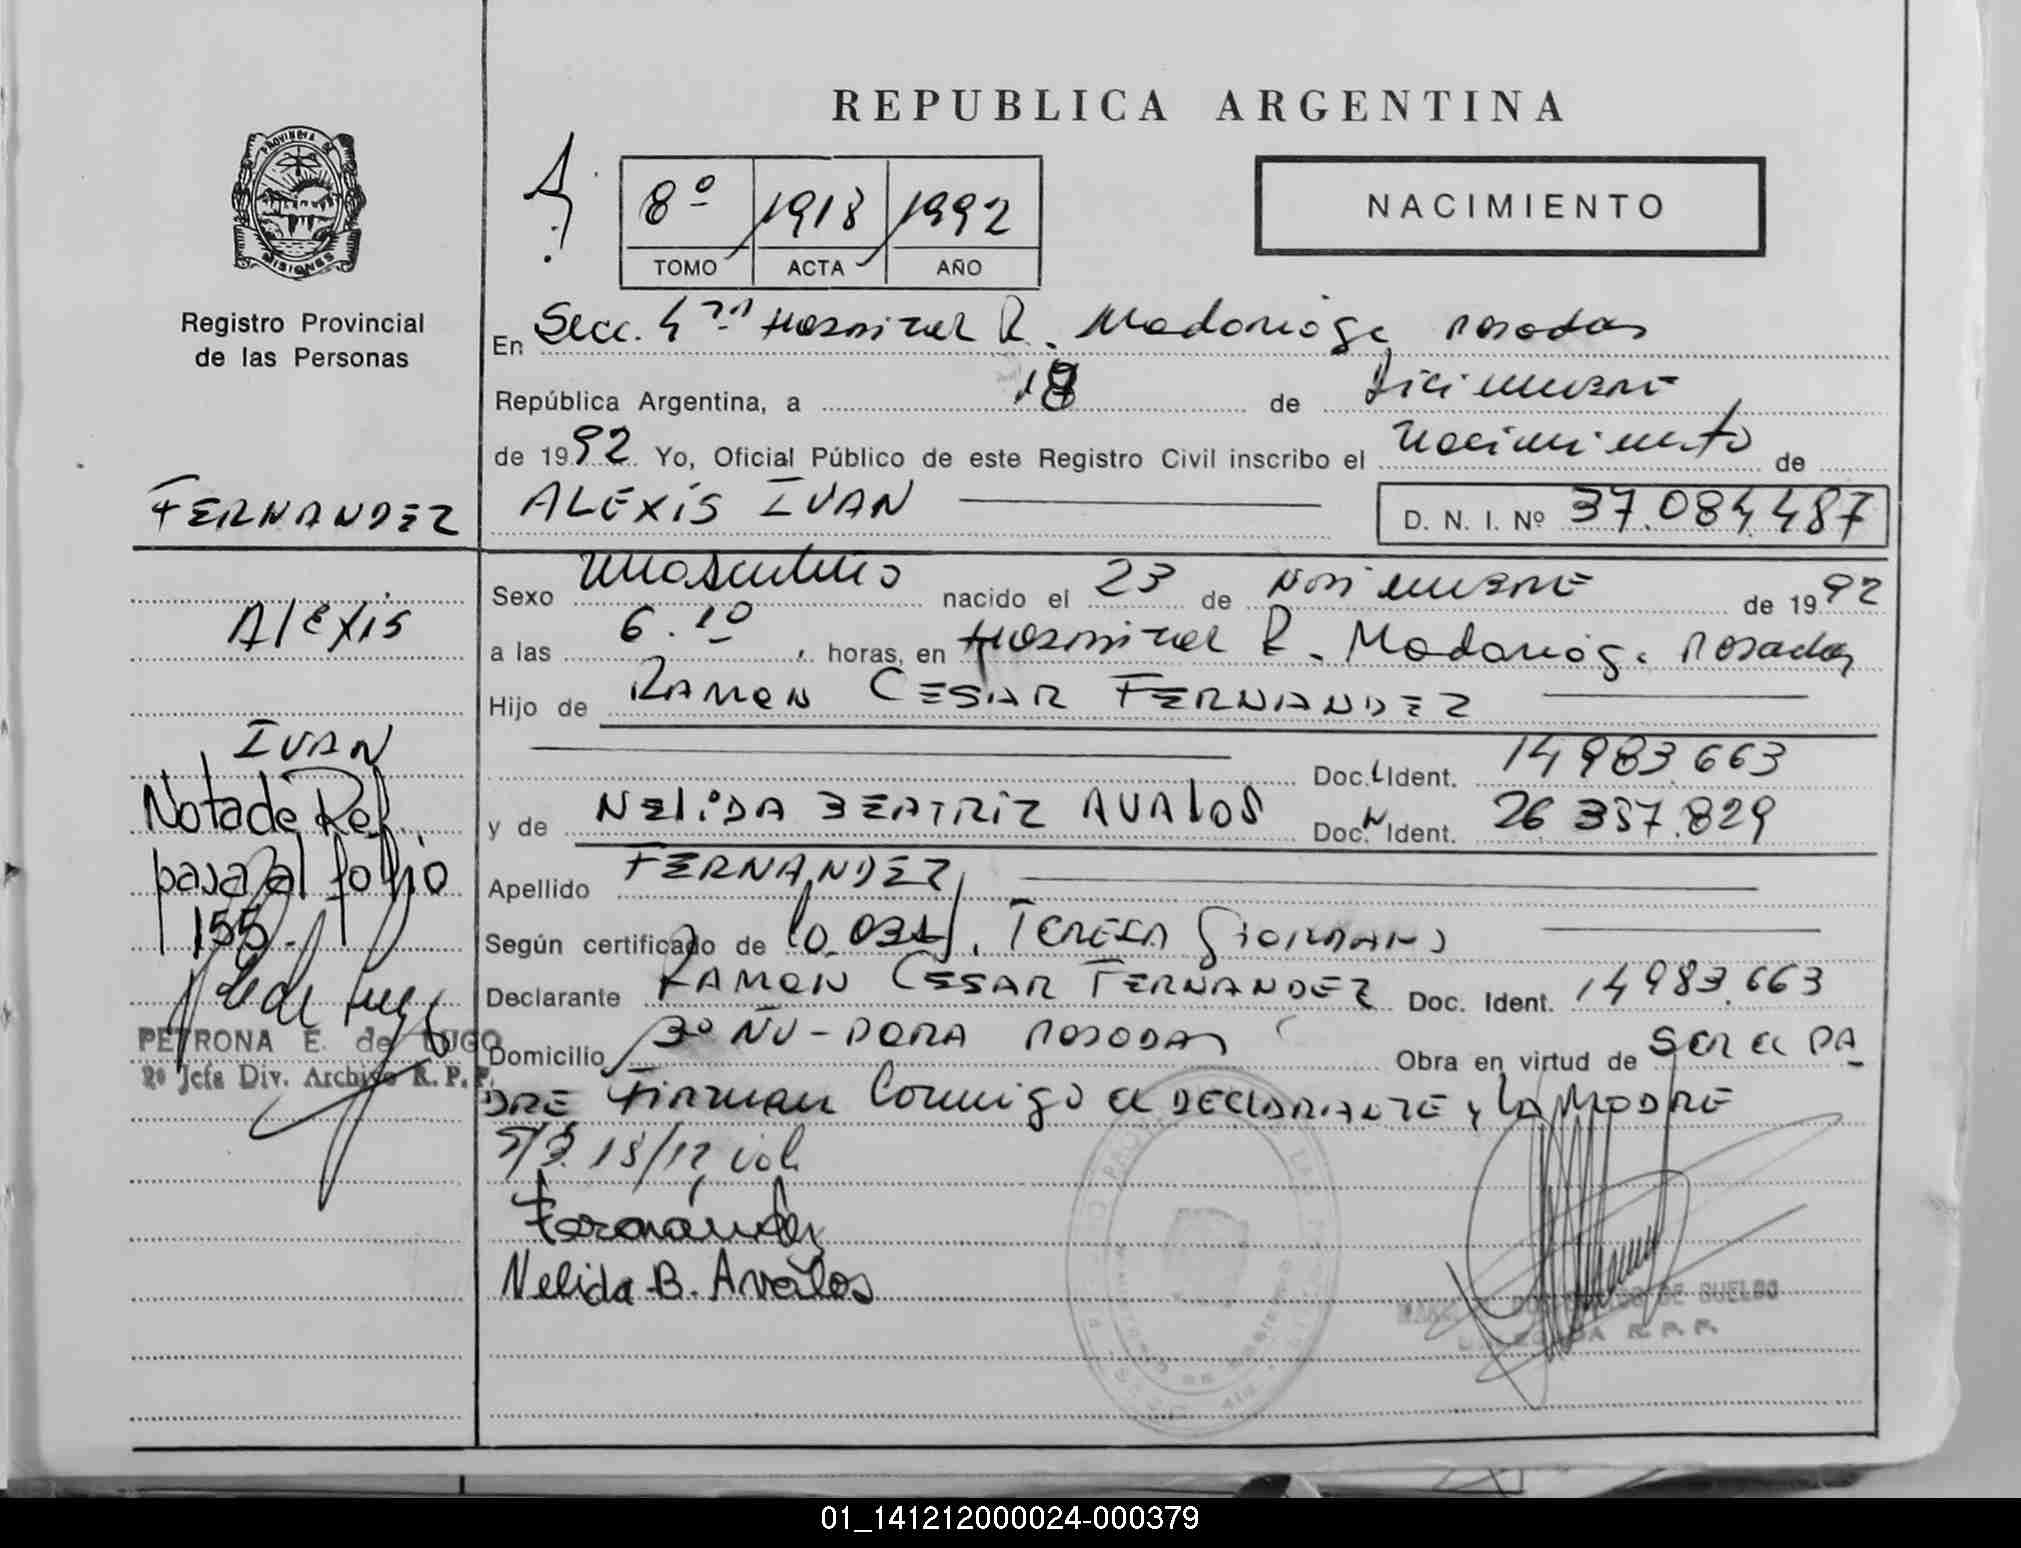 REPUBLICA ARGENTINA
PROVINCIA DE
MISIONES
Registro Provincial
de las Personas
8º 1918 1992
TOMO ACTA AÑO
NACIMIENTO
En Secc. 4ta Hospital R. Madariaga Posadas
República Argentina, a 18 de Diciembre
de 1992 Yo, Oficial Público de este Registro Civil inscribo el Nacimiento de
FERNANDEZ
ALEXIS IVAN
D. N. I. Nº 37.084.487
Sexo Masculino nacido el 23 de Noviembre de 1992
Alexis
a las 6.10 horas, en Hospital R. Madariaga Posadas
Hijo de RAMON CESAR FERNANDEZ
IVAN
Doc. Ident. 14983.663
Nota de Ref.
y de NELIDA BEATRIZ AVALOS Doc. Ident. 26 357.829
pasa al folio
155.
Apellido FERNANDEZ
Según certificado de TERESA GIORDANO
Declarante RAMON CESAR FERNANDEZ Doc. Ident. 14983.663
PETRONA E. de LUGO
2º Jefa Div. Archivo R. P. P.
Domicilio ÑU-PORA POSADAS Obra en virtud de Ser el PA
DRE Firman Conmigo el DECLARANTE y LA MADRE
18/12 vale
Fernández
Nelida B. Avalos
DE SUELDO
R. P. P.
01_141212000024-000379